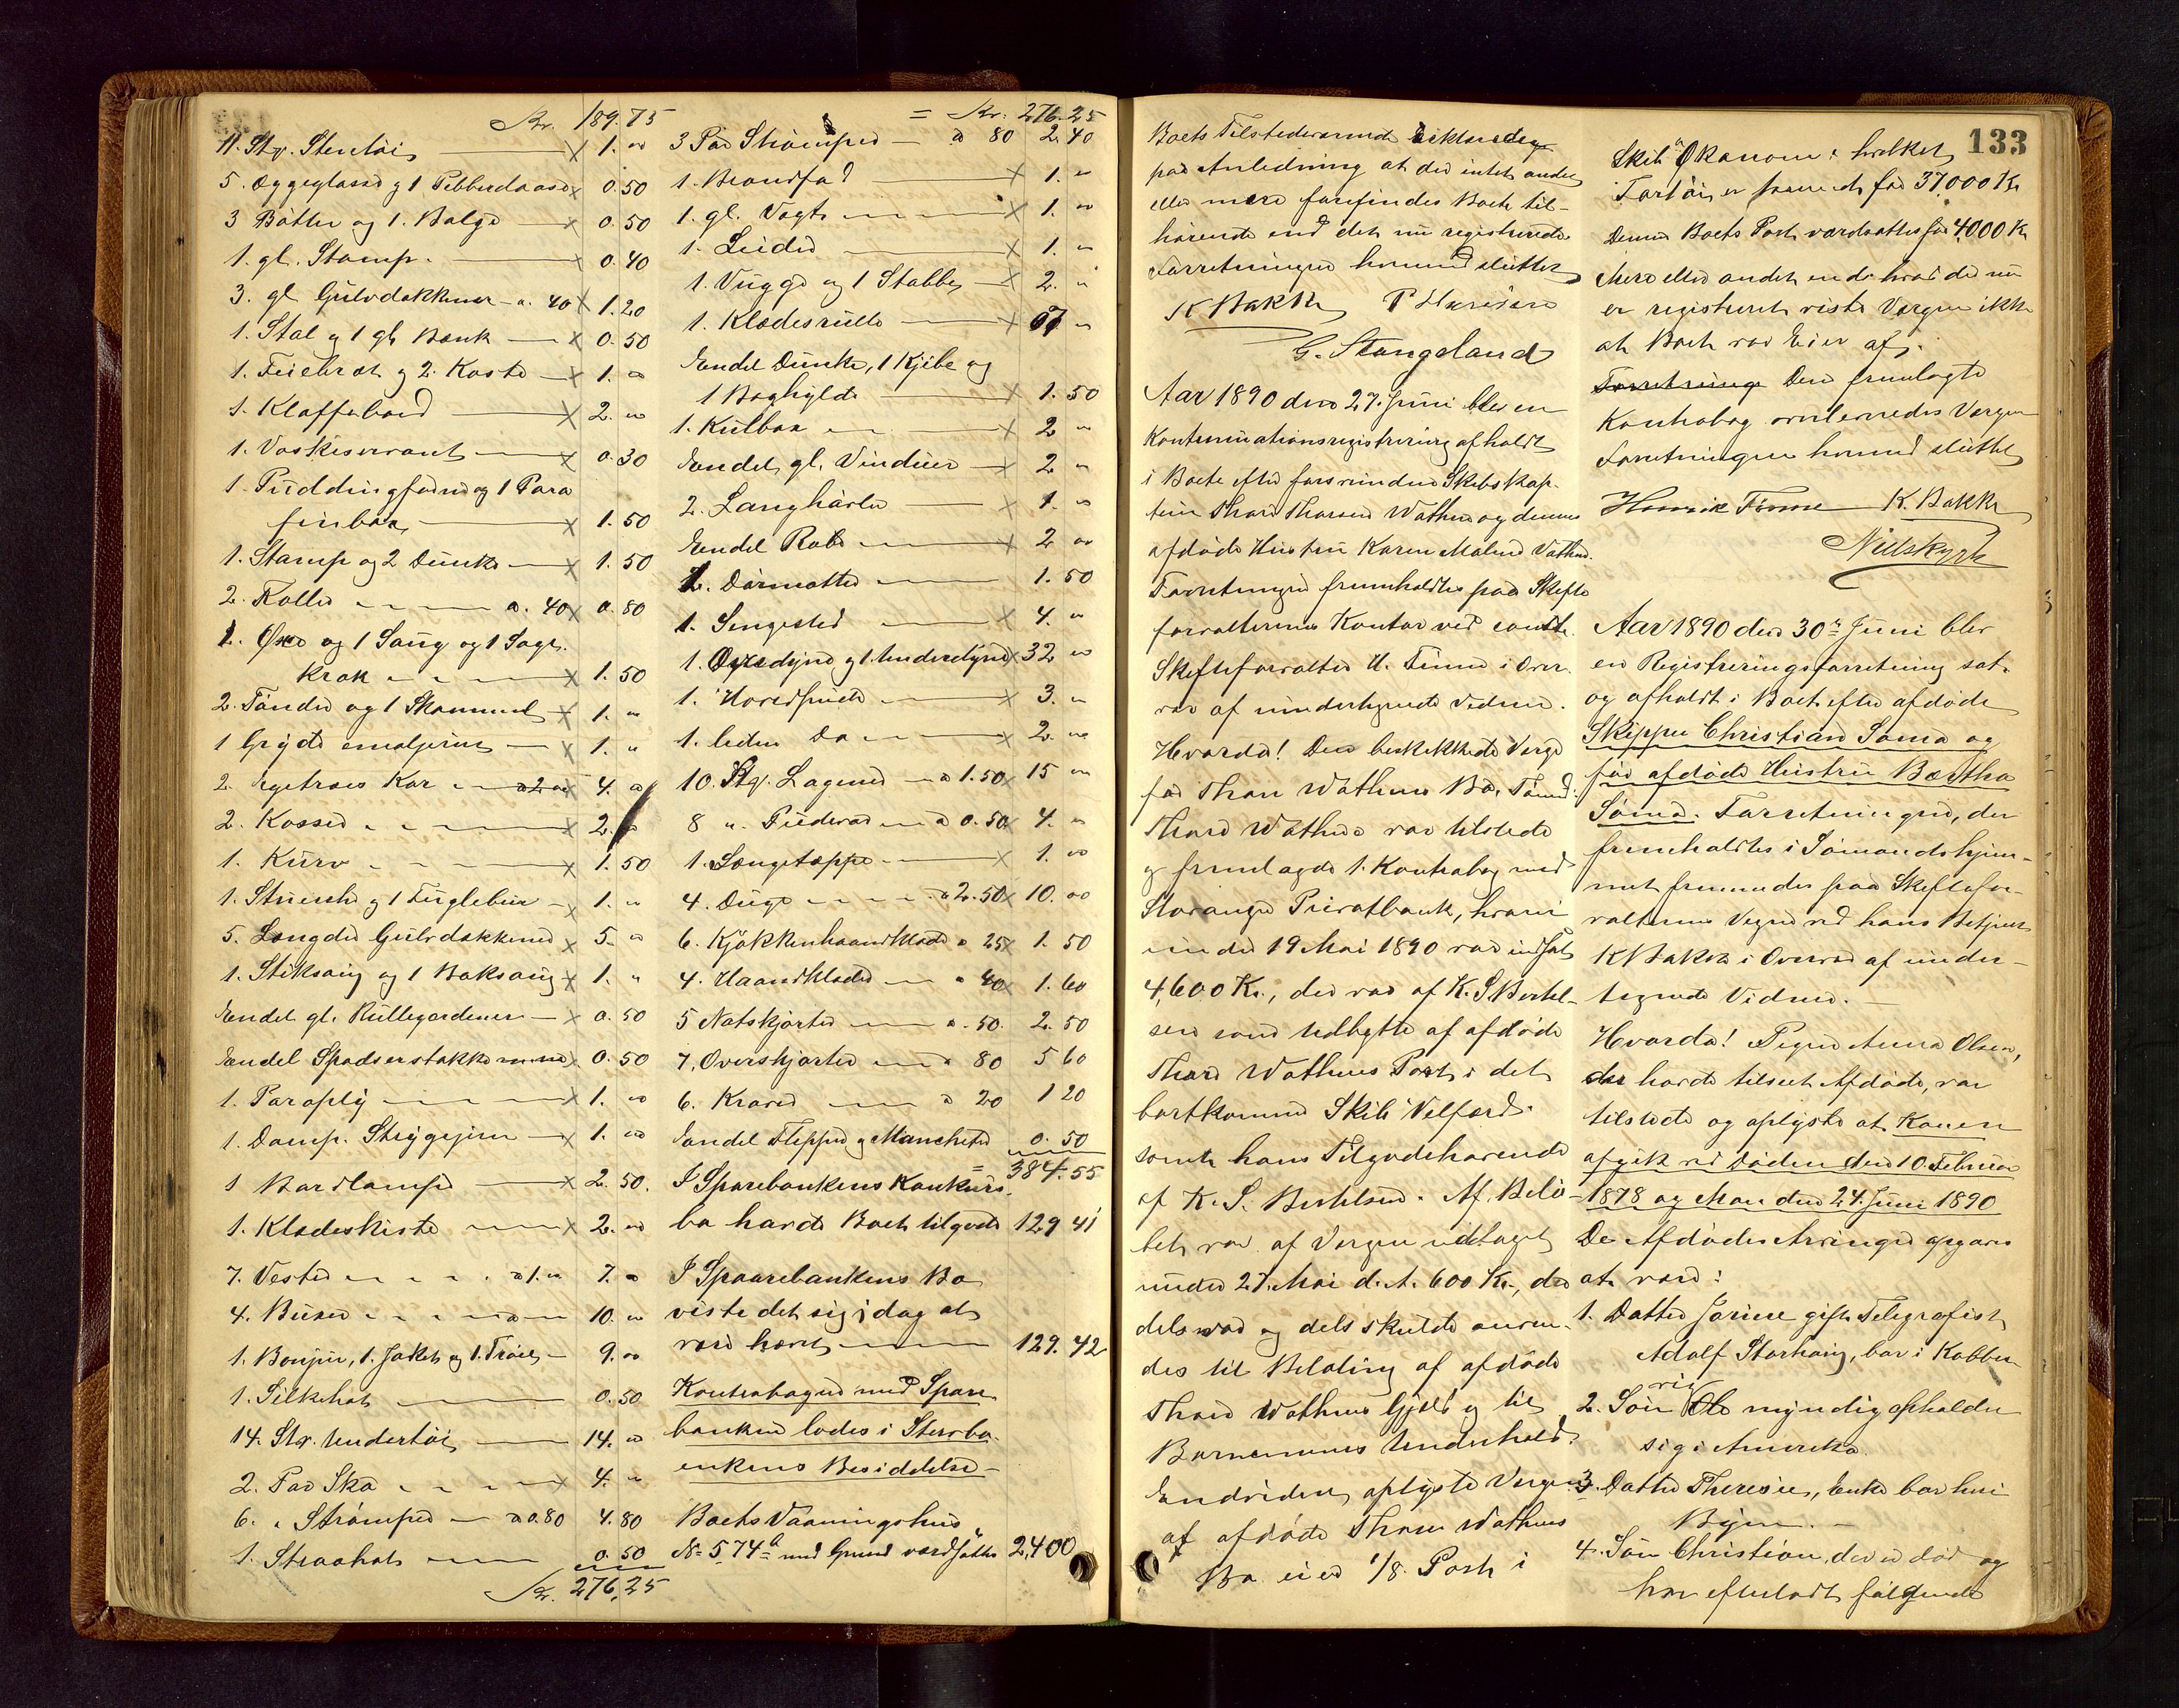 Kr. 189.75
11. Stk. Stentøi 1. "
5. Æggeglasse og 1 Pebberdaase 0.50
3 Bøtter og 1. Balge 0.50
1. gl. Stamp. 0.40
3. gl Gulvdækkener a. 40 1.20
1. Stol og 1 gl Bænk 0.50
1. Feiebræt og 2. Koste 1. "
1. Klaffebord 2. "
1. Vaskeservant 0.30
1. Puddingform og 1 Para
finbox 1.50
1. Stamp og 2 Dunke 1.50
2. Koller a. 40 0.80
1. Øxe og 1 Saug og 1 Sag-
krak 1.50
2. Tønder og 1 Skammel 1. "
1 Gryde emaljeret 1. "
2. Egetræes Kar a 2 " 4. "
2. Kasser 2. "
1. Kurv 1.50
1. og 1 Fuglebur 1. "
5. Længder Gulvdækkener 5. "
1. Stiksaug og 1 Baksaug 1. "
Endel gl. Rullegardener 0.50
Endel Spadserstokke 0.50
1. Paraply 1. "
1. Damp. Strygejern 1. "
1 Bordlampe 2.50.
1. Klædeskiste 2. "
7. Veste a 1. " 7. "
4. Buxer 10. "
1. Bonjur, 1. Jaket og 1. Trøie 9. "
1. Silkehat 0.50
14. Stk. Undertøi 14. "
2. Par Sko 4. "
6. " Strømper a 0.80 4.80
1. Straahat 0.50
Kr. 276,25
= Kr. 276.25
3 Par Strømper a 80 2.40
1. Brandfad 1. "
1. gl. Vægt 1. "
1. 1. "
1. Vugge og 1 Stabbe 2. "
1. Klædesrulle 7 "
Endel Dunke, 1 Kjibe og
1 Boghylde 1.50
1. Kulbox 2 "
Endel gl. Vinduer 2 "
2. Langhøvler 1. "
Endel Reb 2 "
2. Dørmatter 1.50
1. Sengested 4. "
1. Overdyne og 1. Underdyne 32 "
1. Hovedpude 3. "
1. liden Do 2. "
10. Stk. Lagener a 1.50 15 "
8 " Pudevar a 0.50 4. "
1. Sengetæppe 1. "
4. Duge a 2.50 10. "
6. Kjøkkenhaandklæde a 25 1.50
4. Haandklæder a 40 1.60
5 Natskjorter a. 50. 2.50
7. Overskjorter a 80 5 60
6. Kraver a 20 1 20
Endel Flipper og Manchetter 0.50
= 384.55
I Sparebankens Konkurs-
bo havde Boet tilgode 129 41
I Spaarebankens Bo
viste det sig i dag at
være hævet 129.42
Kontrabogen med Spare
banken lodes i Stervbo-
enkens Besiddelse
Boets Vaaningshus
No 574b med Grund værdsattes 2,400
133
Boets Tilstedeværende erklærede
paa Anledning at der intet andet
eller mere forefindes Boet til-
hørende end det nu registrerede
Forretningen hermed sluttet
K Bakke P
G. Stangeland
Aar 1890 den 27. Juni blev en
Kontinuationsregistrering afholdt
i Boete efter forsvunden Skibskap-
tein Thore Thorsen Wathne og dennes
afdøde Hustru Karen Malene Wathne.
Forretningen fremholdtes paa Skifte
forvalterens Kontor ved const.
Skifteforvalter H. Finne i Over-
vær af undertegnede Vidner.
Hvorda! Den beskikkede Værge
for Thore Wathnes Bo,
Thore Wathne var tilstede
og fremlagde 1. Kontrabog med
Stavanger Privatbank, hvori
under 19 Mai 1890 var indsat
4,600 Kr., der var af K. S. Bertel-
sen som Udbytte af afdøde
Thore Wathnes Part i det
bortkomne Skib "Velfærd"
samt hans Tilgodehavende
af K. S. Bertelsen. Af Belø-
bet var af Værgen udtaget
under 27. Mai d. A. 600 Kr., der
dels var og dels skulde anven-
des til Betaling af afdøde
Thore Wathnes Gjæld og til
Børnenenes Underhold.
Endvidere oplyste Værgen
at afdøde Thore Wathnes
Bo eier 1/8 Part i
Skib "Økonom" hvilket
Fartøi er for 37,000 Kr
Denne Boets Part værdsattes for 4,000 Kr
Mere eller andet end hvad der nu
er registreret viste Værgen ikke
at Boet var Eier af.
Forretninge Den fremlagte
Kontrabog overleveredes Værgen
Forretningen hermed sluttet
Henrik Finne K. Bakke
Niels Kyrk
Aar 1890 den 30te Juni blev
en Registreringsforretning sat
og afholdt i Boet efter afdøde
Skipper Christian Sømme og
før afdøde Hustru Bertha
Sømme. Forretningen, der
fremholdtes i Sømandshjem-
met fremmedes paa Skiftefor-
valterens Vegne ved hans Betjent
K Bakke i Overvær af under-
tegnede Vidner.
Hvorda! Pigen Anna Olsen,
der havde tilseet Afdøde, var
tilstede og oplyste at Konen
afgik ved Døden den 10. Februar
1878 og Man den 24. Juni 1890
De Afdødes Arvinger opgaves
at være:
1. Datter Jorine gift Telegrafist
Adolf Storhaug, bor i Kobber-
vig
2. Søn Ole myndig opholder
sig i Amerika
3. Datter Theresie, Enke bor her i
Byen.
4. Søn Christian, der er død og
har efterladt følgende